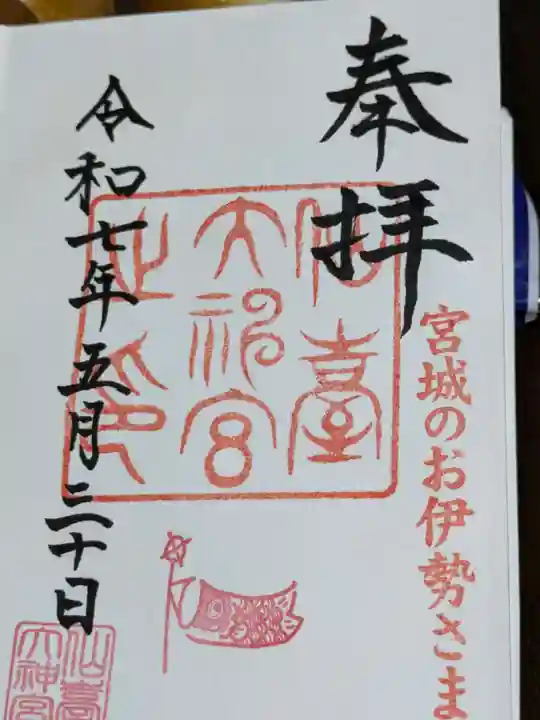 奉拝
宮城のお伊勢さま
仙臺
大神宮
之印
令和七年五月三十日
仙臺
大神宮